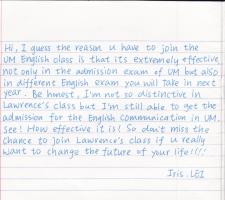 Hi, I guess the reason u have to join the
UM English class is that its extremely effective
not only in the admission exam of UM but also
in different English exam you will Take in next
year. Be honest, I'm not so distinctive in
Lawrence's class but I'm still able to get the
admission for the English Communication in UM.
See! How effective it is! So don't miss the
Chance to join Lawrence's class if u really
Want to change the future of your life!!!!
Iris. LEI